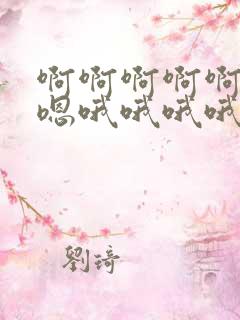 啊啊啊啊啊
嗯哦哦哦哦
劉琦